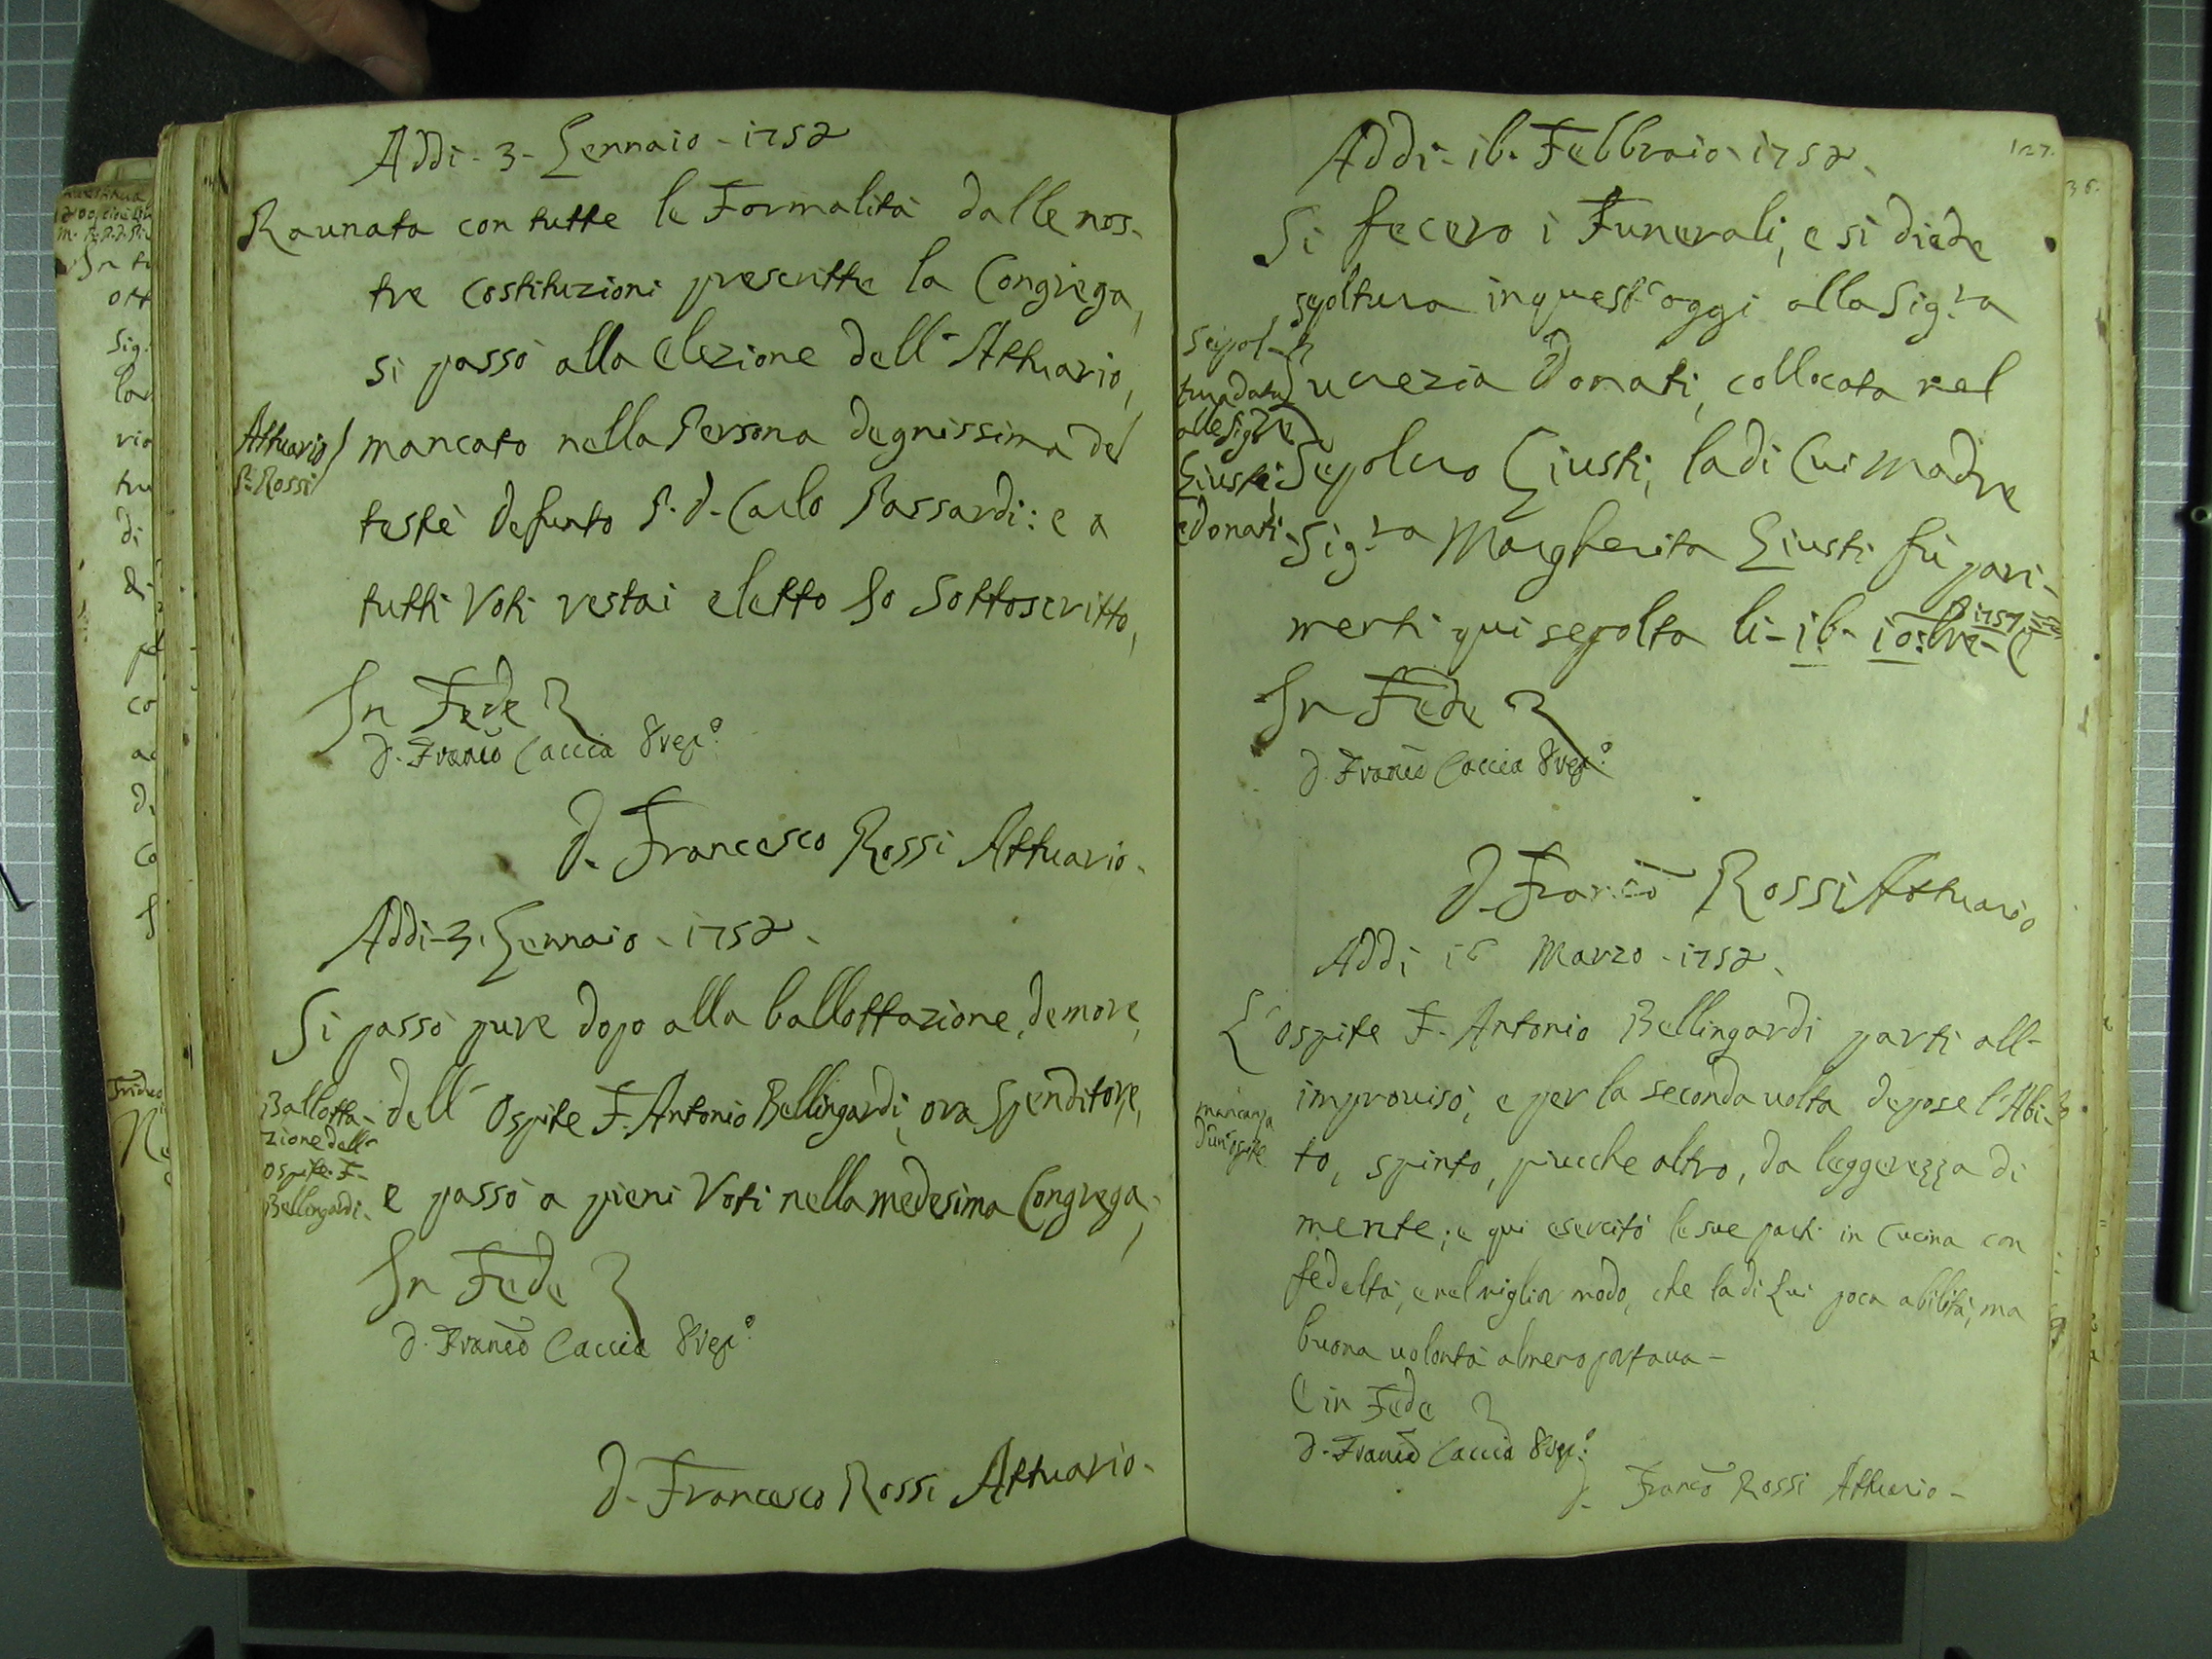 Addi - 3 - Gennaio - 1752
Raunata con tutte le Formalità dalle nos-
tre Costituzioni prescritte la Congrega,
si passò alla elezione dell' Attuario,
Attuario
P. Rossi
mancato nella Persona degnissima del
testè defunto P. D. Carlo Passardi: e a
tutti Voti restai eletto Io Sottoscritto,
In Fede
D. Franco Caccia Prep.o
D. Francesco Rossi Attuario.
Addi - 3. Gennaio - 1752.
Si passò pure dopo alla ballottazione, de more,
Ballotta-
zione dell'
Ospite F.
Bellingardi.
dell' Ospite F. Antonio Bellingardi, ora Spenditore,
e passò a pieni Voti nella medesima Congrega,
In Fede
D. Franco Caccia Prep.o
D. Francesco Rossi Attuario.
127.
Addi - 16. Febbraio - 1752.
Si fecero i Funerali, e si diede
sepoltura in quest' oggi alla Sig.ra
Sepol-
tura data
alle Sig.re
Giusti
e Donati.
Lucrezia Donati, collocata nel
Sepolcro Giusti, la di Cui Madre
Sig.ra Margherita Giusti fù pari-
menti qui sepolta li - 16 - 10:bre -
In Fede
D. Franco Caccia Prep.o
D. Franco Rossi Attuario
Addi 16 Marzo - 1752.
L' Ospite F. Antonio Bellingardi partì all'
improviso, e per la seconda volta depose l' Abi-
mancanza
d'un Ospite
to, spinto, piucche altro, da leggerezza di
mente; e qui esercitò le sue parti in Cucina con
fedeltà, e nel miglior modo, che la di Lui poca abilità, ma
buona volontà almeno portava -
E in Fede
D. Franco Caccia Prep.o
D. Franco Rossi Attuario -